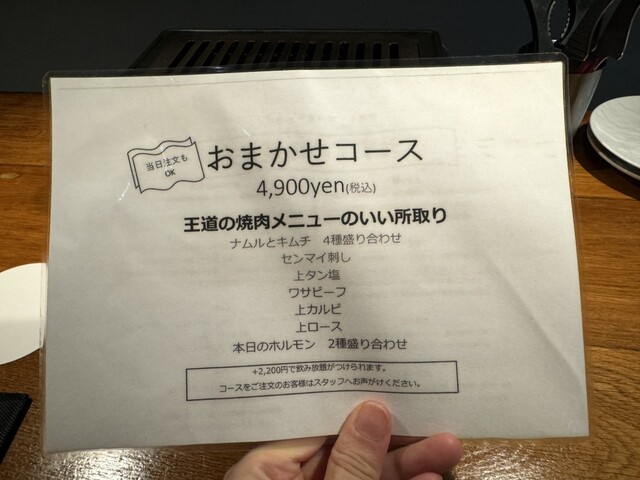 当日注文も
OK
おまかせコース
4,900yen(税込)
王道の焼肉メニューのいい所取り
ナムルとキムチ　4種盛り合わせ
センマイ刺し
上タン塩
ワサビーフ
上カルビ
上ロース
本日のホルモン　2種盛り合わせ
+2,200円で飲み放題がつけられます。
コースをご注文のお客様はスタッフへお声がけください。